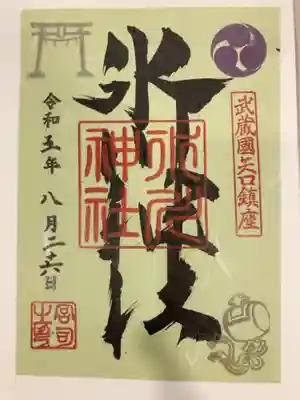 武蔵國矢口鎮座
氷川神社
氷川
神社
令和五年 八月二十六日
宮司
之印